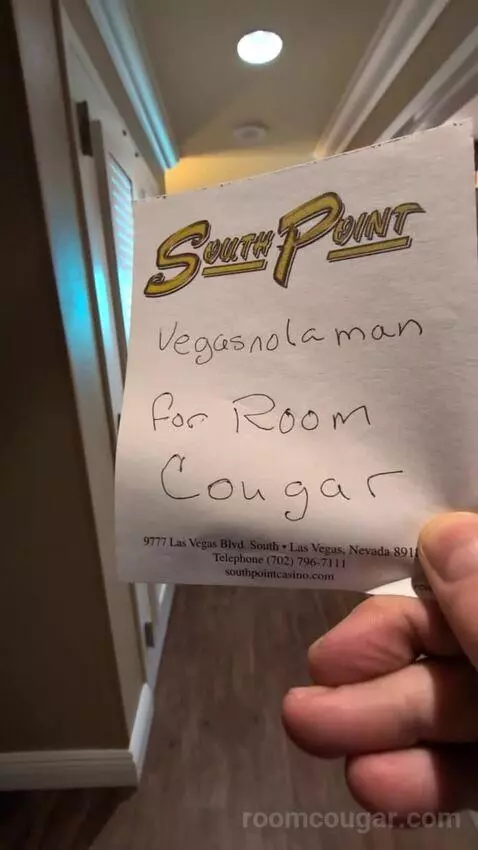 SOUTH POINT
Vegasnolaman
for Room
Cougar
9777 Las Vegas Blvd. South • Las Vegas, Nevada 891
Telephone (702) 796-7111
southpointcasino.com
roomcougar.com